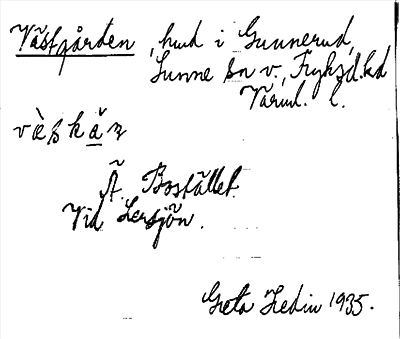 Västgården, hmd i Gunnerud,
Sunne sn v., Fryksd. hd
Värml. l.
Ä. Bostället.
Vid Lersjön.
Greta Hedin 1935.